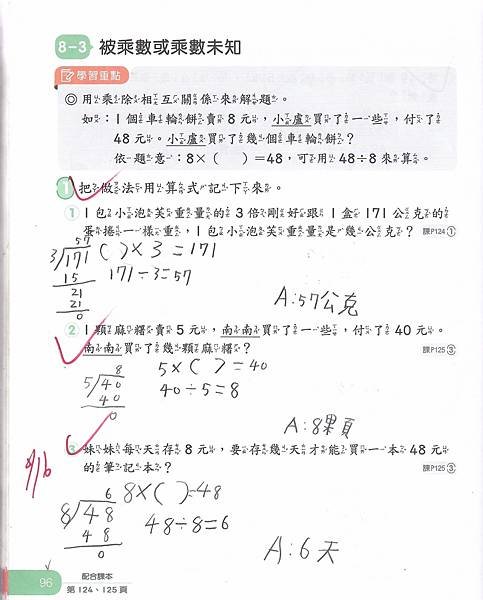 8-3 被乘數或乘數未知
學習重點
◎用乘除相互關係來解題。
如：1個車輪餅賣8元，小盧買了一些，付了
48元。小盧買了幾個車輪餅？
依題意：8×（　）＝48，可用48÷8來算。
1 把做法用算式記下來。
① 1包小泡芙重量的3倍剛好跟1盒171公克的
蛋捲一樣重，1包小泡芙重量是幾公克？ 課P124①
57
3/171
15
21
21
0
( )×3=171
171÷3=57
A:57公克
② 1顆麻糬賣5元，南南買了一些，付了40元。
南南買了幾顆麻糬？ 課P125③
8
5/40
40
0
5×( )=40
40÷5=8
A:8顆
3 妹妹每天存8元，要存幾天才能買一本48元
的筆記本？ 課P125③
6
8/48
48
0
8×( )=48
48÷8=6
A:6天
96
配合課本
第124、125頁